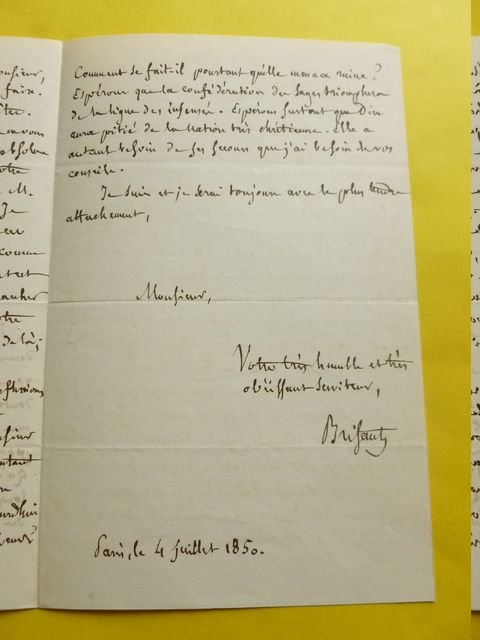 Comment se fait-il pourtant qu'elle menace ruine?
Espérons que la confédération des sages triomphera
de la ligue des insensés. Espérons surtout que Dieu
aura pitié de la nation très chrétienne. Elle a
autant besoin de ses secours que j'ai besoin de vos
conseils.
Je suis et je serai toujours avec le plus tendre
attachement,
Monsieur,
Votre très humble et très
obéissant serviteur,
Brifaut
Paris, le 4 juillet 1850.